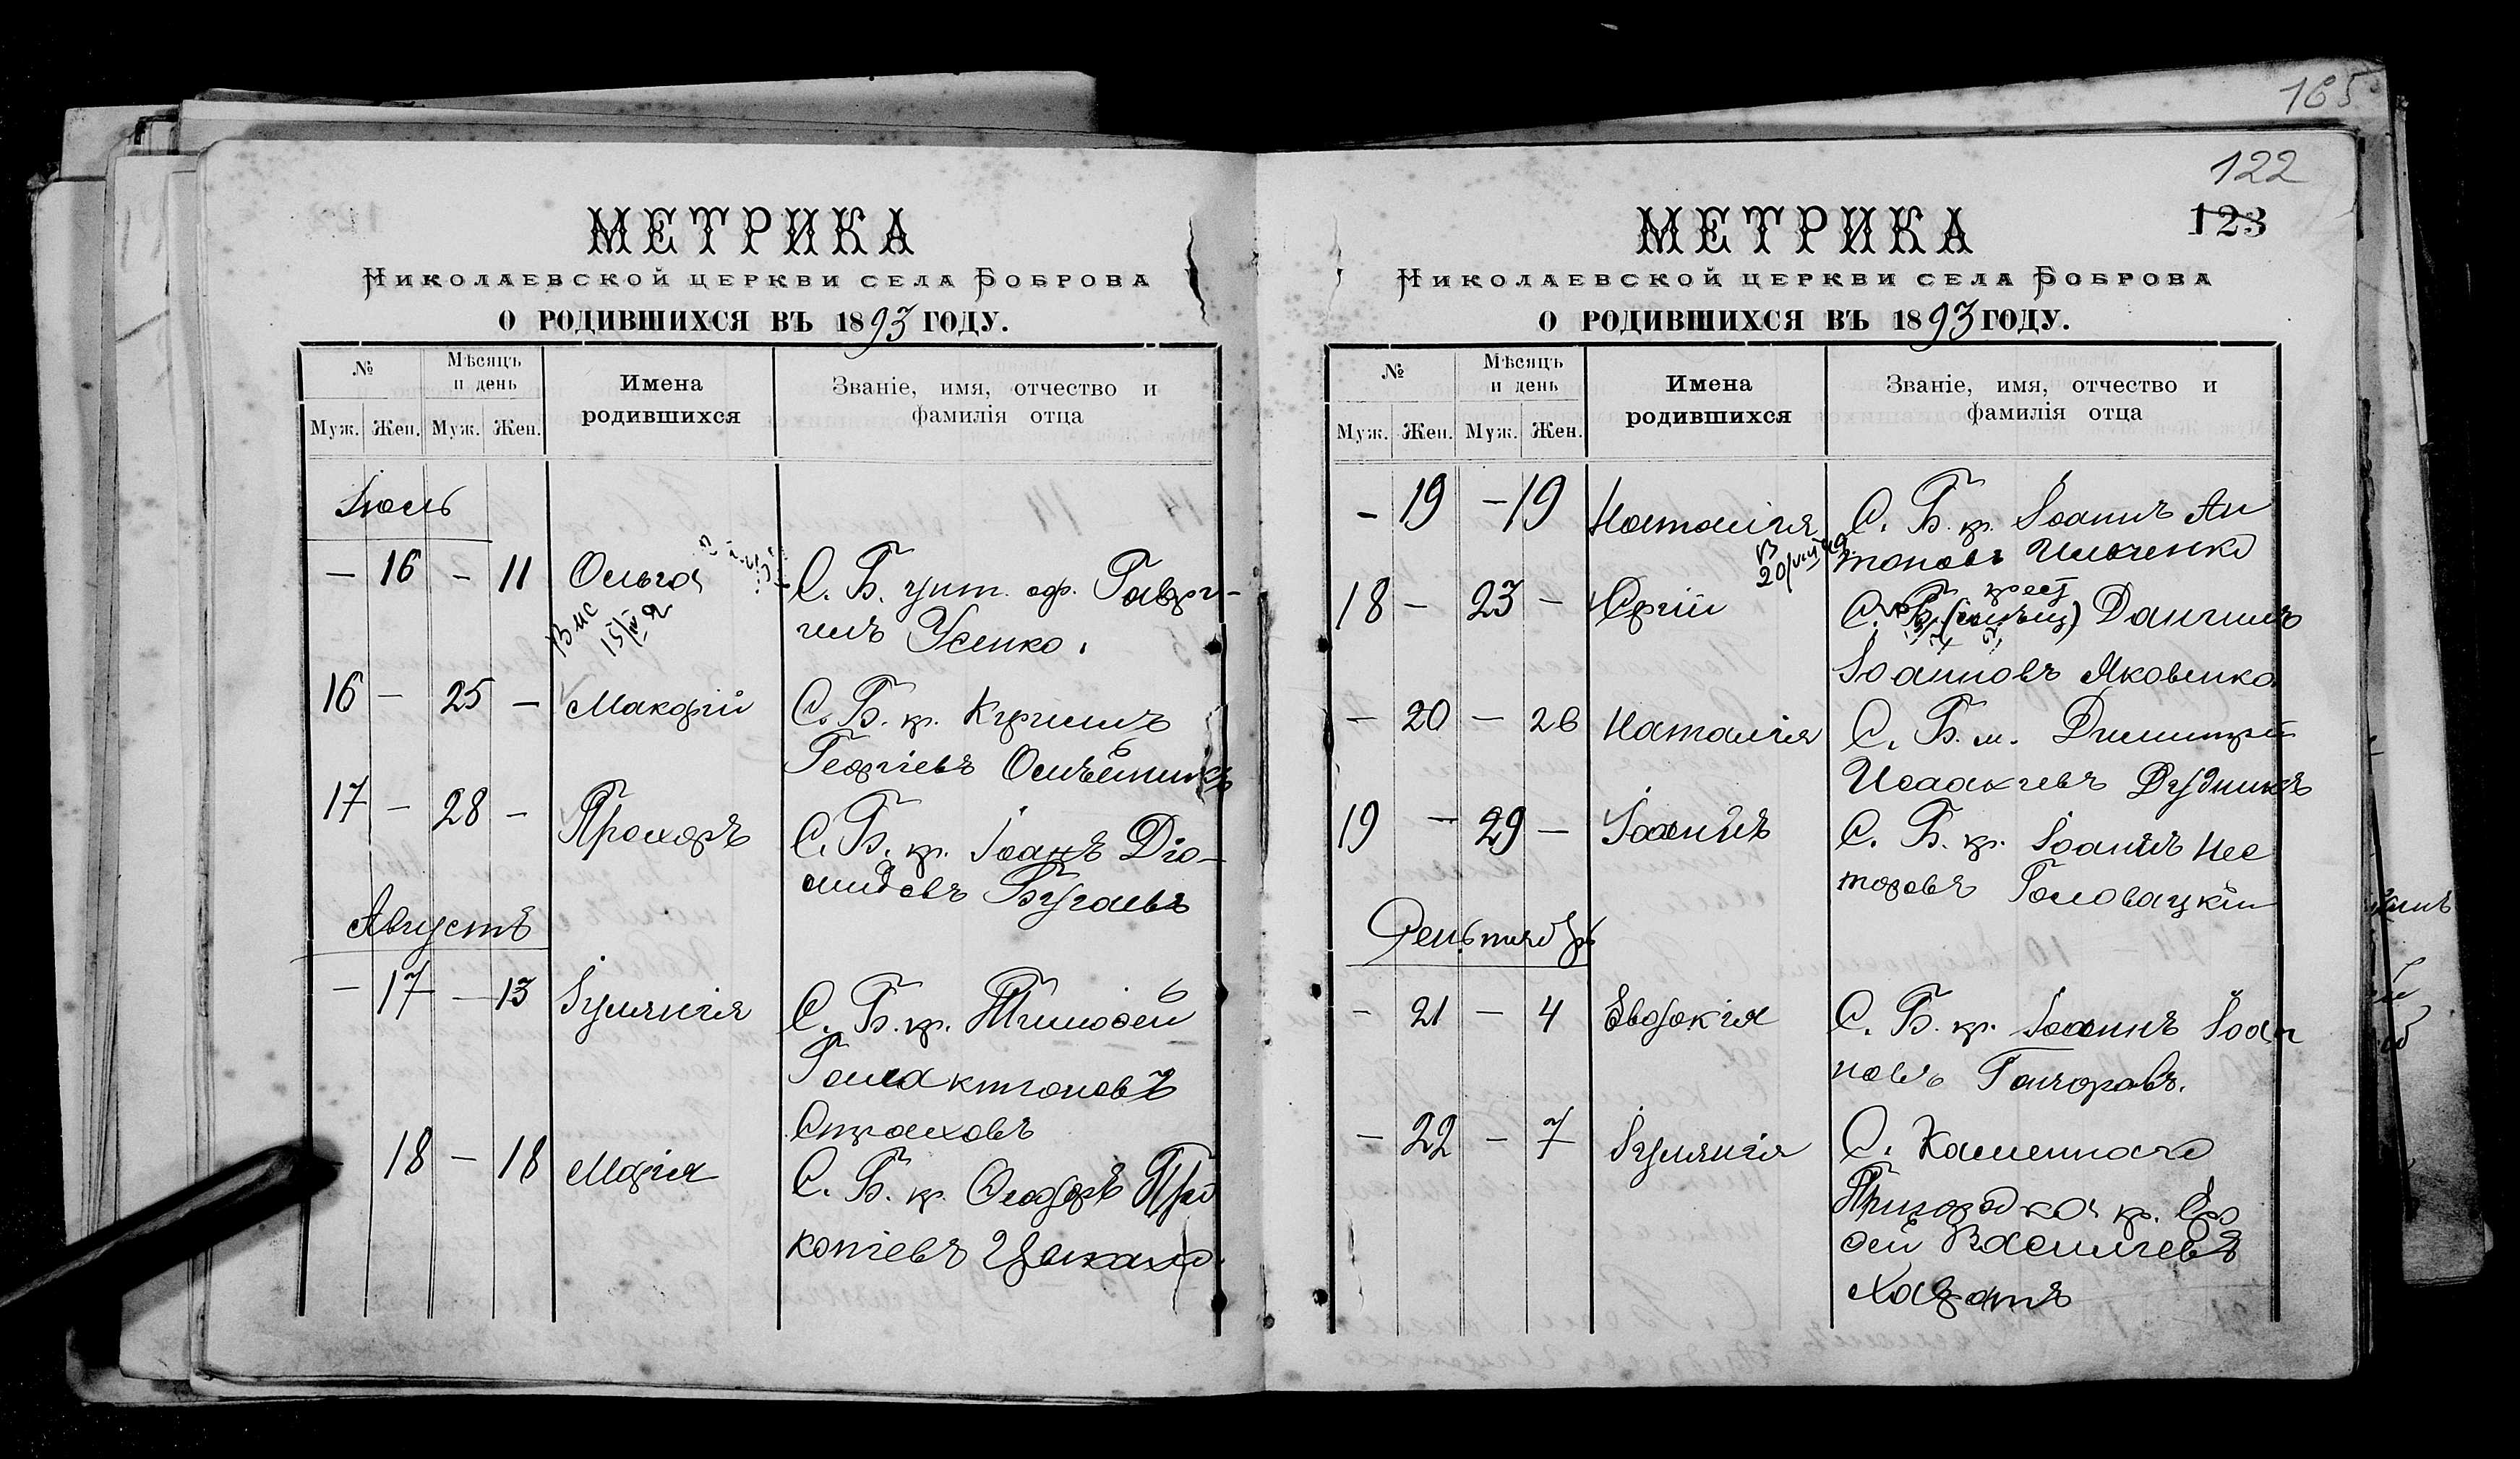 165
МЕТРИКА
НИКОЛАЕВСКОЙ ЦЕРКВИ СЕЛА БОБРОВА
О РОДИВШИХСЯ ВЪ 1893 ГОДУ.
№
Мѣсяцъ и день
Имена родившихся
Званіе, имя, отчество и фамилія отца
Муж. Жен. Муж. Жен.
Іюль
— 16 — 11 Ольга С. Б. унт. оф. Гаврі-
илъ Усенко.
16 — 25 — Макарій С. Б. кр. Кириллъ
Георгіевъ Олѣйникъ
17 — 28 — Прохоръ С. Б. кр. Іоанъ Діо-
мидовъ Бугаевъ
Августъ
— 17 — 13 Іуліанія С. Б. кр. Тимоѳей
Галактіоновъ
Страховъ
18 — 18 Марія С. Б. кр. Ѳеодоръ Про
копіевъ
122
123
МЕТРИКА
НИКОЛАЕВСКОЙ ЦЕРКВИ СЕЛА БОБРОВА
О РОДИВШИХСЯ ВЪ 1893 ГОДУ.
№
Мѣсяцъ и день
Имена родившихся
Званіе, имя, отчество и фамилія отца
Муж. Жен. Муж. Жен.
— 19 — 19 Наталія С. Б. кр. Іоаннъ Ан
тоновъ Ильченко
18 — 23 — Сергій С. Б. крест Даніилъ
Іоанновъ Яковенко
— 20 — 26 Наталія С. Б. м. Димитрій
Исаакіевъ Дудникъ
19 — 29 — Іоаннъ С. Б. кр. Іоаннъ Нес
торовъ Головацкій
Сентябрь
— 21 — 4 Евдокія С. Б. кр. Іоаннъ Іоан
новъ Гончаровъ.
— 22 — 7 Іуліанія С. Каменнаго
кр.
Василіевъ